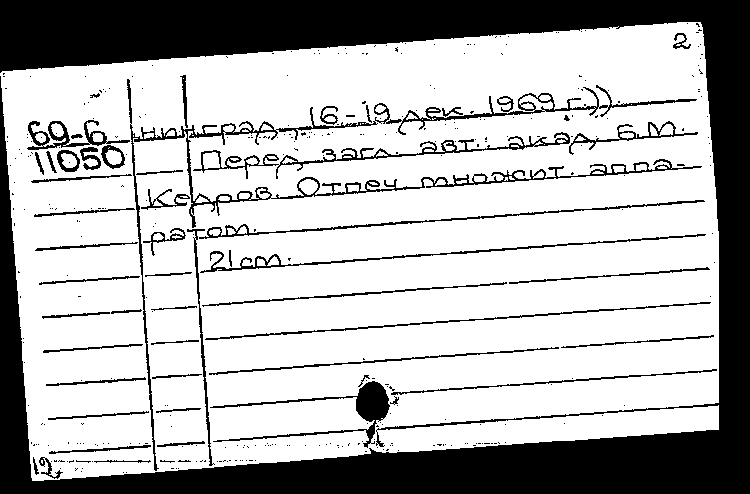 2
69-6
11050
нинград, 16-19 дек. 1969 г.))
Перед загл. авт.: акад. Б.М.
Кедров. Отпеч. множит. аппа-
ратом.
21 cm.
12,